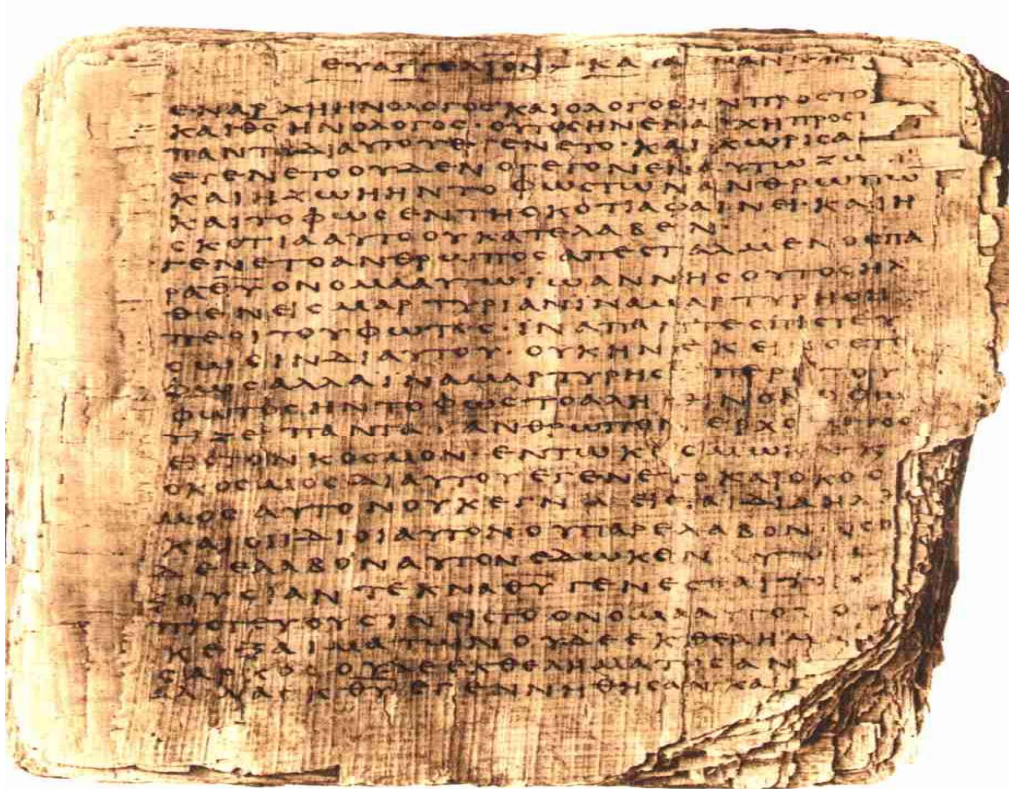 ΕΥΑΓΓΕΛΙΟΝ ΚΑΤΑ ΑΝΝΗΝ
ΕΝΑΡΧΗΗΝΟΛΟΓΟϹΚΑΙΟΛΟΓΟϹΗΝΠΡΟϹΤΟ
ΚΑΙΘϹΗΝΟΛΟΓΟϹ·ΟΥΤΟϹΗΝΕΝΑΡΧΗΠΡΟϹΤ
ΠΑΝΤΑΔΙΑΥΤΟΥΕΓΕΝΕΤΟ·ΚΑΙΧΩΡΙϹΑ
ΕΓΕΝΕΤΟΟΥΔΕΝΟΓΕΓΟΝΕΝΑΥΤΩΖΩ
ΚΑΙΗΖΩΗΗΝΤΟΦΩϹΤΩΝΑΝΘΡΩΠΩ
ΚΑΙΤΟΦΩϹΕΝΤΗϹΚΟΤΙΑΦΑΙΝΕΙ·ΚΑΙΗ
ϹΚΟΤΙΑΑΥΤΟΟΥΚΑΤΕΛΑΒΕΝ·
ΓΕΝΕΤΟΑΝΘΡΩΠΟϹΑΠΕϹΤΑΛΜΕΝΟϹΠΑ
ΡΑΘΥΟΝΟΜΑΑΥΤΩΙΩΑΝΝΗϹΟΥΤΟϹΗΛ
ΘΕΝΕΙϹΜΑΡΤΥΡΙΑΝΙΝΑΜΑΡΤΥΡΗϹΗ
ΠΕΡΙΤΟΥΦΩΤΟϹ·ΙΝΑΠΑΝΤΕϹΠΙϹΤΕΥ
ϹΩϹΙΝΔΙΑΥΤΟΥ·ΟΥΚΗΝΕΚΕΙΝΟϹΤΟ
ΦΩϹΑΛΛΑΙΝΑΜΑΡΤΥΡΗϹΗΠΕΡΙΤΟΥ
ΦΩΤΟϹΗΝΤΟΦΩϹΤΟΑΛΗΘΙΝΟΝΟΦΩ
ΤΙΖΕΙΠΑΝΤΑΑΝΘΡΩΠΟΝΕΡΧΟΜΕΝΟ
ΕΙϹΤΟΝΚΟϹΜΟΝ·ΕΝΤΩΚΟϹΜΩΗΝΚ
ΟΚΟϹΜΟϹΔΙΑΥΤΟΥΕΓΕΝΕΤΟΚΑΙΟΚΟϹ
ΜΟϹΑΥΤΟΝΟΥΚΕΓΝΩΕΙϹΤΑΙΔΙΑΗΛΘ
ΚΑΙΟΙΙΔΙΟΙΑΥΤΟΝΟΥΠΑΡΕΛΑΒΟΝ·ΟϹΟΙ
ΔΕΕΛΑΒΟΝΑΥΤΟΝΕΔΩΚΕΝΑΥΤΟΙϹΕ
ΞΟΥϹΙΑΝΤΕΚΝΑΘΥΓΕΝΕϹΘΑΙΤΟΙϹ
ΠΙϹΤΕΥΟΥϹΙΝΕΙϹΤΟΟΝΟΜΑΑΥΤΟΥΟΙ
ΚΕΞΑΙΜΑΤΩΝΟΥΔΕΕΚΘΕΛΗΜΑ
ϹΑΡΚΟϹΟΥΔΕΕΚΘΕΛΗΜΑΤΟϹΑΝ
ΑΛΛΑΕΚΘΥΕΓΕΝΝΗΘΗϹΑΝΚΑΙ